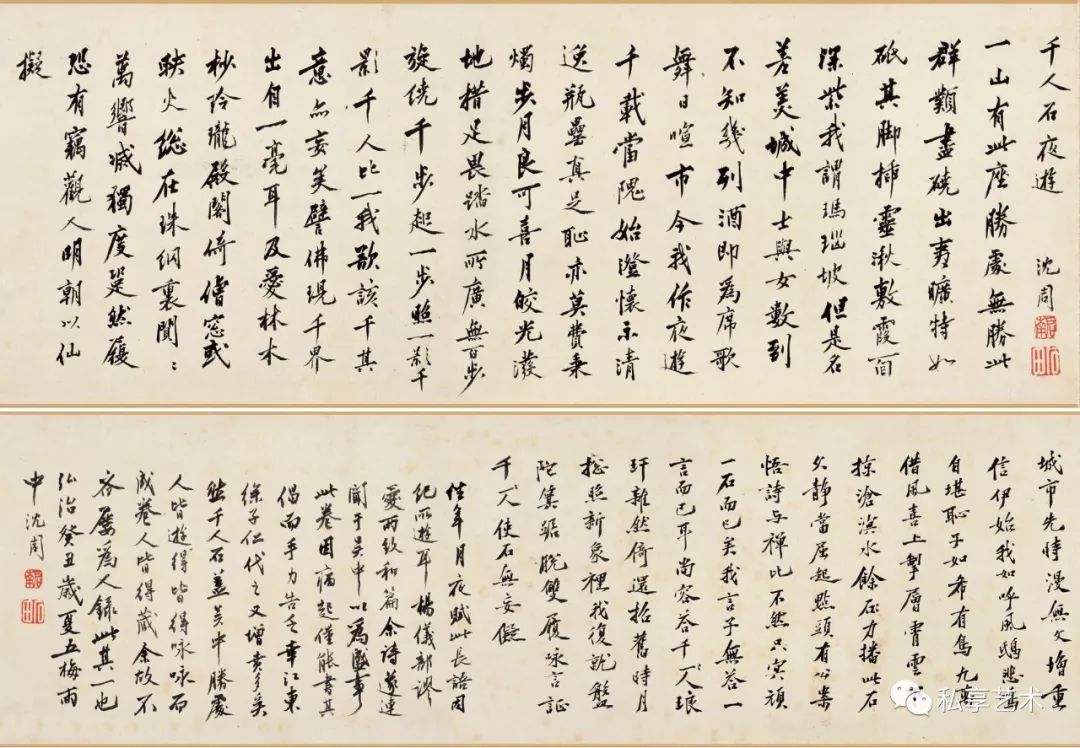 千人石夜遊 沈周
啟南
石田
一山有此座勝處無勝此
群類盡磽出夷曠特如
砥其脚插靈湫敷霞面
深紫我謂瑪瑙坡但是名
差美城中士與女數到
不知幾列酒即為席歌
舞日喧市今我作夜遊
千載當隗始澄懷示清
逸瓶罍真足恥亦莫費秉
燭步月良可喜月皎光潑
地措足畏踏水所廣無百步
旋繞千步起一步照一影千
影千人比一我欲該千其
意亦妄矣譬佛現千界
出自一毫耳及愛林木
杪玲瓏殿閣倚僧窓或
映火總在珠網裏闃〻
萬響滅獨度跫然履
恐有竊觀人明朝以仙
擬
城市先時漫無文增重
信伊始我如呼風鴟悲鳴
自堪恥子如希有鳥九萬
借風喜上掣層霄雲
掠滄溟水餘力播此石
久靜當屈起點頭有公案
悟詩与禪比不然只冥頑
一石而已矣我言子無答一
言而已耳尚容吞千人琅
玕雜然倚還招舊時月
揔照新象裡我復就盤
陀箕踞脫雙履咏言証
千人使石無妄儗
往年月夜賦此長語因
紀所遊耳楊儀部謬
愛而致和篇余詩遂連
聞于吳中以為盛事
此卷因病起僅能書其
倡而手力告乏幸江東
徐子仁代之又增貴多矣
然千人石蓋吳中勝處
人皆遊得皆得咏咏而
成卷人皆得藏余故不
吝屢為人録此其一也
弘治癸丑歲夏五梅雨
中沈周
啟南
石田
私享艺术